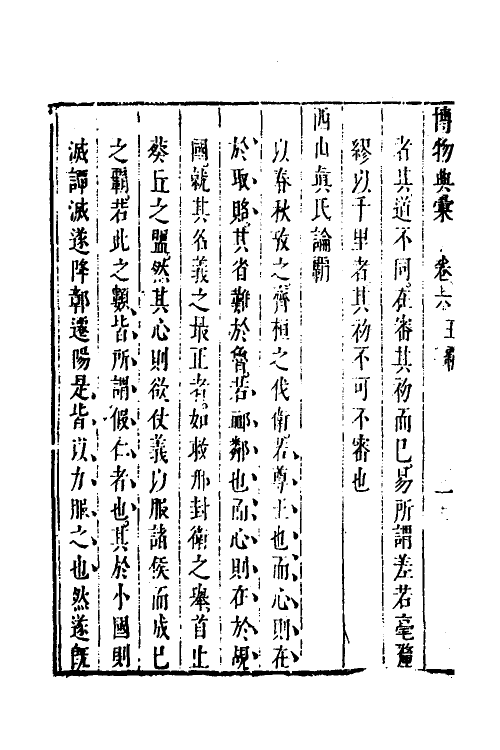 博物典彙 卷六 王霸 一
者其道不同在審其初而已易所謂差若毫釐
繆以千里者其初不可不審也
西山真氏論霸
以春秋攷之齊桓之伐衛若尊王也而心則在
於取賂其省難於魯若恤鄰也而心則在於覘
國就其名義之最正者如救邢封衛之舉首止
葵丘之盟然其心則欲仗義以服諸侯而成已
之霸若此之類皆所謂假仁者也其於小國則
滅譚滅遂降鄣遷陽是皆以力服之也然遂旣